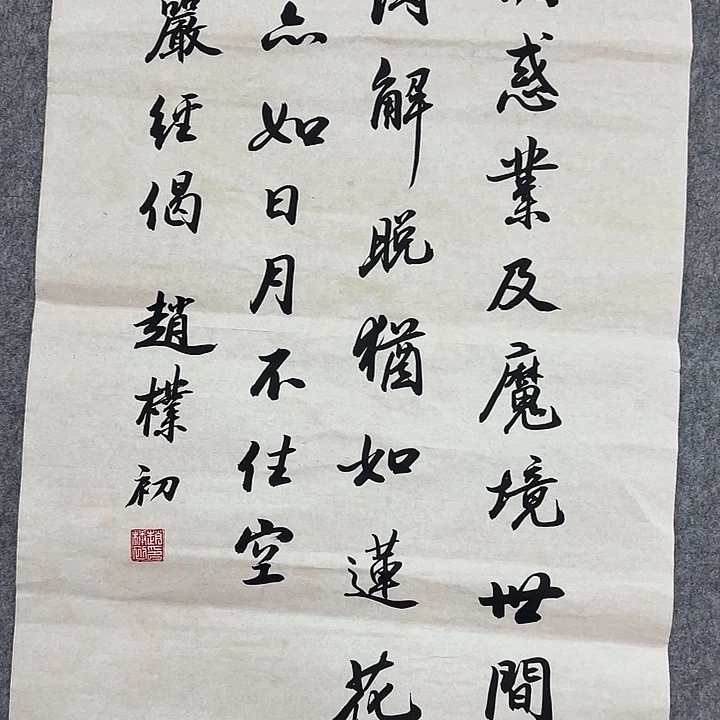 惑業及魔境世間
解脫猶如蓮花
亦如日月不住空
嚴經偈 趙樸初